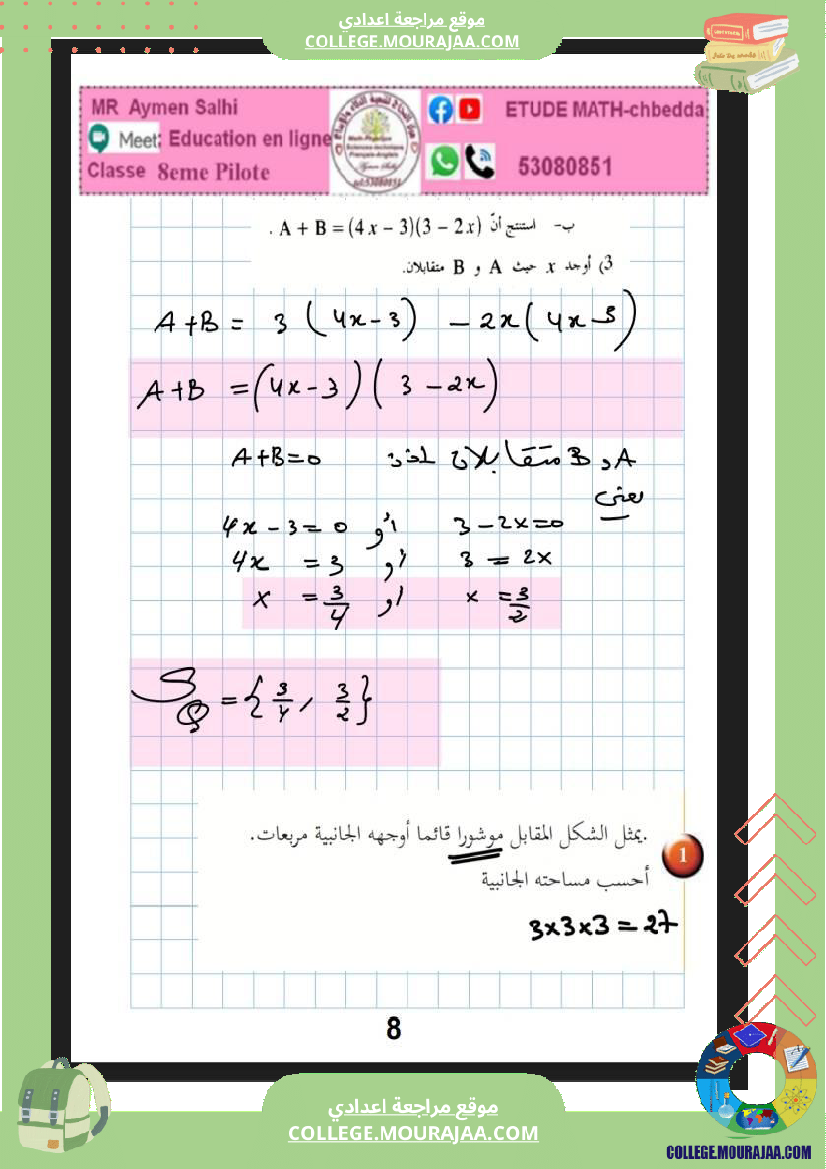 موقع مراجعة اعدادي
COLLEGE.MOURAJAA.COM
MR Aymen Salhi
Meet: Education en ligne
Classe 8eme Pilote
ETUDE MATH-chbedda
53080851
ب- استنتج أنّ A + B = (4x – 3)(3 – 2x) .
3) أوجد x حيث A و B متقابلان.
A+B = 3 (4x-3) - 2x(4x-3)
A+B = (4x-3)(3-2x)
A و B متقابلان اذن A+B=0
يعني
4x-3=0 أو 3-2x=0
4x = 3 أو 3 = 2x
x = 3/4 او x = 3/2
= {3/4, 3/2}
1
.يمثل الشكل المقابل موشورا قائما أوجهه الجانبية مربعات.
أحسب مساحته الجانبية
3x3x3=27
8
موقع مراجعة اعدادي
COLLEGE.MOURAJAA.COM
COLLEGE.MOURAJAA.COM